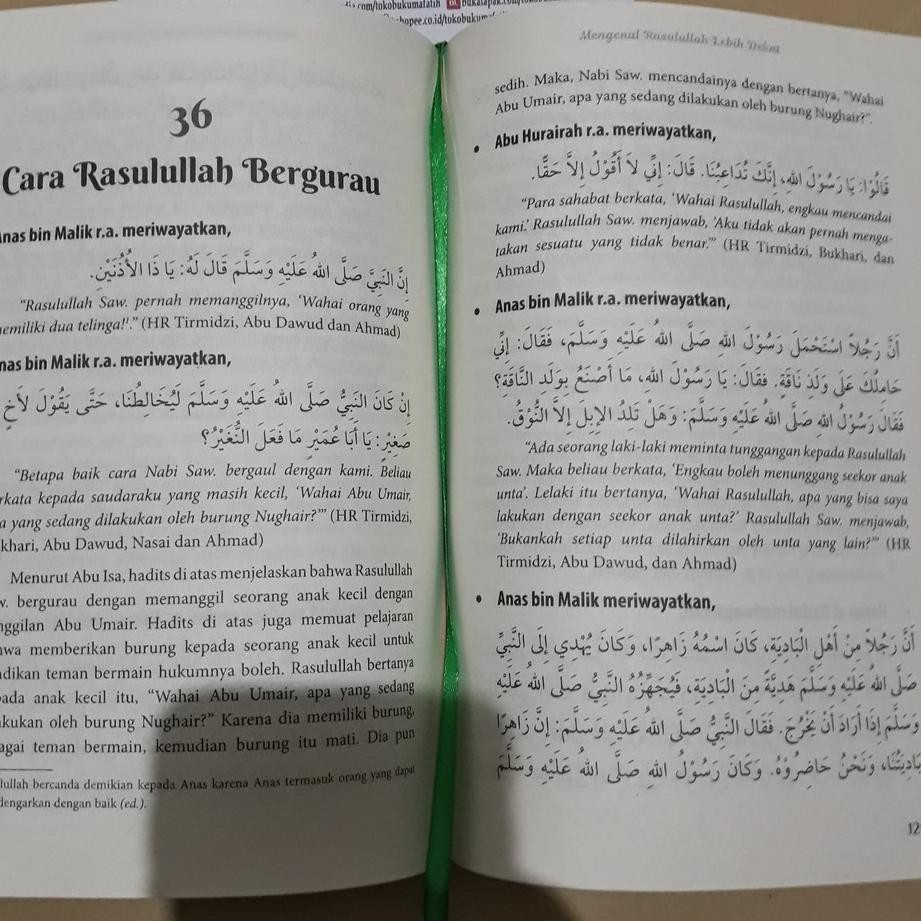 com/tokobukumafatih
hopee.co.id/tokobukum
36
Cara Rasulullah Bergurau
Anas bin Malik r.a. meriwayatkan,
إِنَّ النَّبِيَّ صَلَّى اللهُ عَلَيْهِ وَسَلَّمَ قَالَ لَهُ: يَا ذَا الْأُذُنَيْنِ.
“Rasulullah Saw. pernah memanggilnya, ‘Wahai orang yang
emiliki dua telinga!’.” (HR Tirmidzi, Abu Dawud dan Ahmad)
nas bin Malik r.a. meriwayatkan,
إِنْ كَانَ النَّبِيُّ صَلَّى اللهُ عَلَيْهِ وَسَلَّمَ لَيُخَالِطُنَا، حَتَّى يَقُوْلَ لأَخٍ
صَغِيْرٍ: يَا أَبَا عُمَيْرٍ مَا فَعَلَ النُّغَيْرُ؟
“Betapa baik cara Nabi Saw. bergaul dengan kami. Beliau
rkata kepada saudaraku yang masih kecil, ‘Wahai Abu Umair,
a yang sedang dilakukan oleh burung Nughair?’” (HR Tirmidzi,
khari, Abu Dawud, Nasai dan Ahmad)
Menurut Abu Isa, hadits di atas menjelaskan bahwa Rasulullah
w. bergurau dengan memanggil seorang anak kecil dengan
nggilan Abu Umair. Hadits di atas juga memuat pelajaran
hwa memberikan burung kepada seorang anak kecil untuk
adikan teman bermain hukumnya boleh. Rasulullah bertanya
pada anak kecil itu, “Wahai Abu Umair, apa yang sedang
akukan oleh burung Nughair?” Karena dia memiliki burung,
agai teman bermain, kemudian burung itu mati. Dia pun
lullah bercanda demikian kepada Anas karena Anas termasuk orang yang dapat
dengarkan dengan baik (ed.).
Mengenal Rasulullah Lebih Dekat
sedih. Maka, Nabi Saw. mencandainya dengan bertanya, “Wahai
Abu Umair, apa yang sedang dilakukan oleh burung Nughair?”.
• Abu Hurairah r.a. meriwayatkan,
قَالُوْا: يَا رَسُوْلَ اللهِ، إِنَّكَ تُدَاعِبُنَا. قَالَ: إِنِّي لاَ أَقُوْلُ إِلاَّ حَقًّا.
“Para sahabat berkata, ‘Wahai Rasulullah, engkau mencandai
kami.’ Rasulullah Saw. menjawab, ‘Aku tidak akan pernah menga-
takan sesuatu yang tidak benar.’” (HR Tirmidzi, Bukhari, dan
Ahmad)
• Anas bin Malik r.a. meriwayatkan,
أَنَّ رَجُلاً اسْتَحْمَلَ رَسُوْلَ اللهِ صَلَّى اللهُ عَلَيْهِ وَسَلَّمَ، فَقَالَ: إِنِّي
حَامِلُكَ عَلَى وَلَدِ نَاقَةٍ. فَقَالَ: يَا رَسُوْلَ اللهِ، مَا أَصْنَعُ بِوَلَدِ النَّاقَةِ؟
فَقَالَ رَسُوْلُ اللهِ صَلَّى اللهُ عَلَيْهِ وَسَلَّمَ: وَهَلْ تَلِدُ الإِبِلَ إِلاَّ النُّوْقُ.
“Ada seorang laki-laki meminta tunggangan kepada Rasulullah
Saw. Maka beliau berkata, ‘Engkau boleh menunggang seekor anak
unta’. Lelaki itu bertanya, ‘Wahai Rasulullah, apa yang bisa saya
lakukan dengan seekor anak unta?’ Rasulullah Saw. menjawab,
‘Bukankah setiap unta dilahirkan oleh unta yang lain?’” (HR
Tirmidzi, Abu Dawud, dan Ahmad)
• Anas bin Malik meriwayatkan,
أَنَّ رَجُلاً مِنْ أَهْلِ الْبَادِيَةِ، كَانَ اسْمُهُ زَاهِرًا، وَكَانَ يُهْدِي إِلَى النَّبِيِّ
صَلَّى اللهُ عَلَيْهِ وَسَلَّمَ هَدِيَّةً مِنَ الْبَادِيَةِ، فَيُجَهِّزُهُ النَّبِيُّ صَلَّى اللهُ عَلَيْهِ
وَسَلَّمَ إِذَا أَرَادَ أَنْ يَخْرُجَ. فَقَالَ النَّبِيُّ صَلَّى اللهُ عَلَيْهِ وَسَلَّمَ: إِنَّ زَاهِرًا
بَادِيَتُنَا، وَنَحْنُ حَاضِرُوْهُ. وَكَانَ رَسُوْلُ اللهِ صَلَّى اللهُ عَلَيْهِ وَسَلَّمَ
12